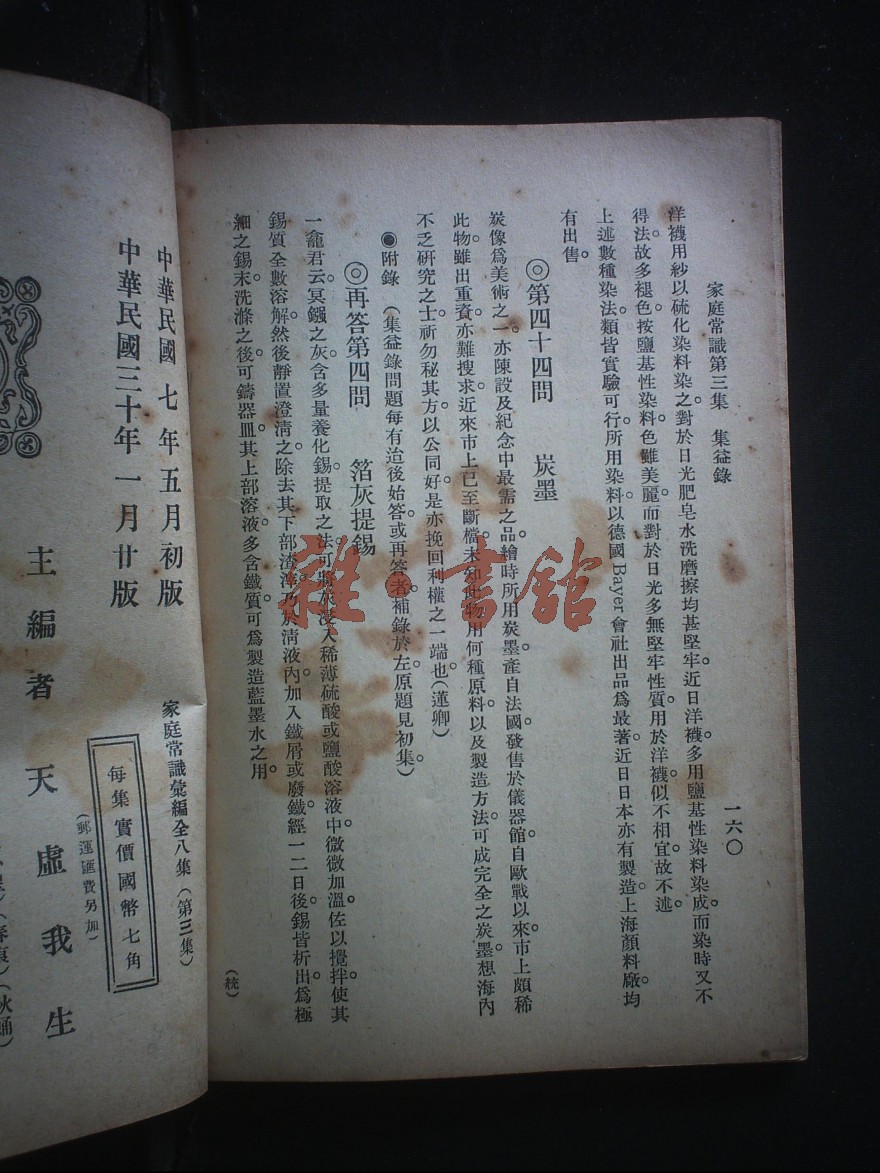 家庭常識第三集 集益錄 一六〇
洋襪用紗以硫化染料染之。對於日光肥皂水洗磨擦均甚堅牢。近日洋襪多用鹽基性染料染成。而染時又不
得法。故多褪色。按鹽基性染料色雖美麗。而對於日光多無堅牢性質。用於洋襪似不相宜。故不述。
上述數種染法。類皆實驗可行。所用染料以德國Bayer會社出品爲最著。近日日本亦有製造。上海顏料廠均
有出售。
◎第四十四問 炭墨
炭像爲美術之一。亦陳設及紀念中最需之品。繪時所用炭墨。產自法國。發售於儀器館。自歐戰以來市上頗稀
此物。雖出重資。亦難搜求。近來市上已至斷檔。未知此物用何種原料以及製造方法可成完全之炭墨。想海內
不乏研究之士。祈勿秘其方。以公同好。是亦挽回利權之一端也。(蓮卿)
●附錄 (集益錄問題每有迨後始答或再答者。補錄於左。原題見初集。)
◎再答第四問 箔灰提錫
一龕君云。冥鏹之灰含多量養化錫。提取之法。可將灰浸入稀薄硫酸或鹽酸溶液中。微微加溫。佐以攪拌。使其
錫質全數溶解。然後靜置澄清之。除去其下部渣滓。乃於清液內加入鐵屑或廢鐵。經一二日後。錫皆析出。爲極
細之錫末。洗滌之後。可鑄器皿。其上部溶液。多含鐵質。可爲製造藍墨水之用。
(統)
中華民國七年五月初版
中華民國三十年一月廿版
家庭常識彙編全八集(第三集)
每集實價國幣七角
(郵運匯費另加)
主編者 天虛我生
雜·書館